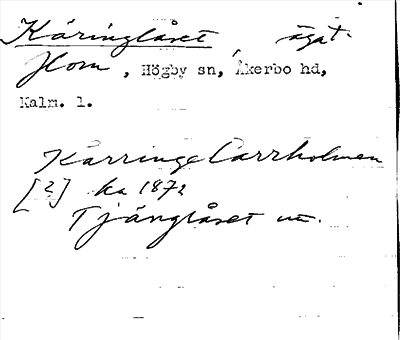 Käringlåset, ägat.
Hom, Högby sn, Åkerbo hd,
Kalm. l.
Kärringe Carrholmen
[?] ka 1872
Tjänglåset un.